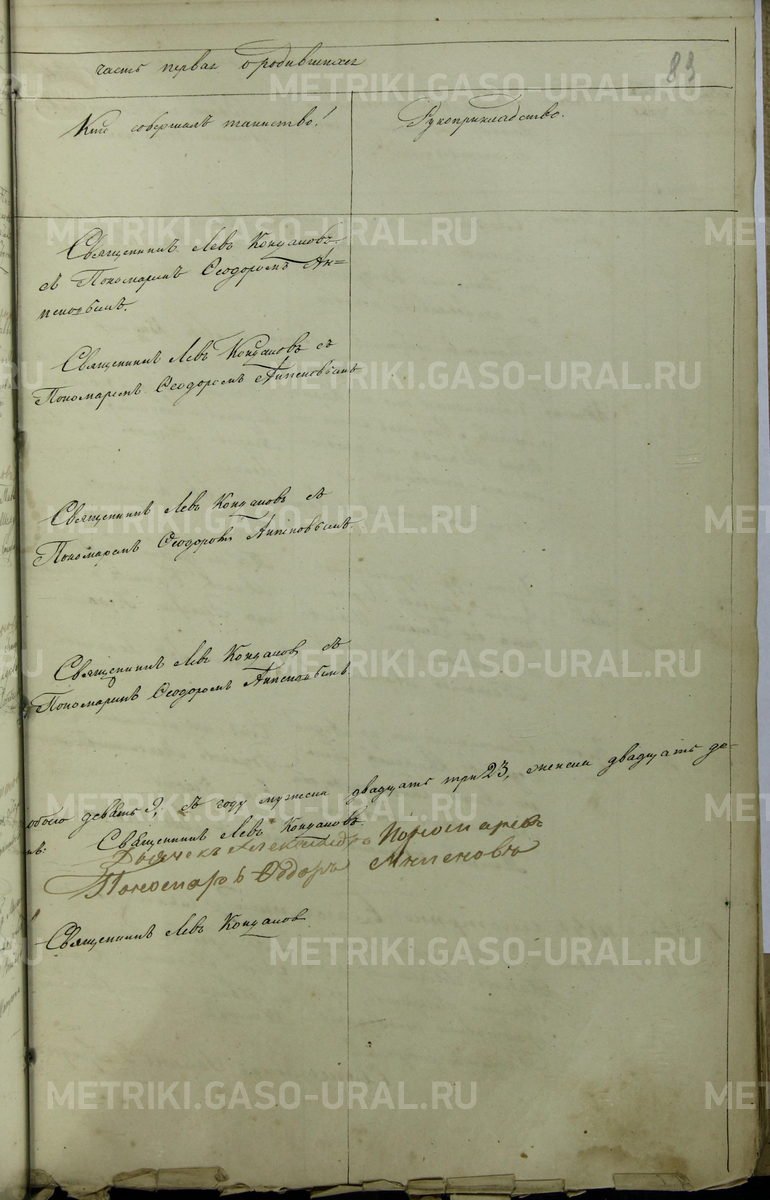 часть первая о родившихся
83
Кто совершалъ таинство!
Рукоприкладство.
Священникъ Левъ Кондаковъ
съ Пономаремъ Ѳеодоромъ
Священникъ Левъ Кондаковъ съ
Пономаремъ Ѳеодоромъ
Священникъ Левъ Кондаковъ съ
Пономаремъ Ѳеодоромъ
Священникъ Левъ Кондаковъ съ
Пономаремъ Ѳеодоромъ
обоего девять 9, въ году мужеска двадцать три 23, женска двадцать де-
Священникъ Левъ Кондаковъ
Дьячекъ Александръ Пономаревъ
Пономарь Ѳедоръ
Священникъ Левъ Кондаковъ
METRIKI.GASO-URAL.RU